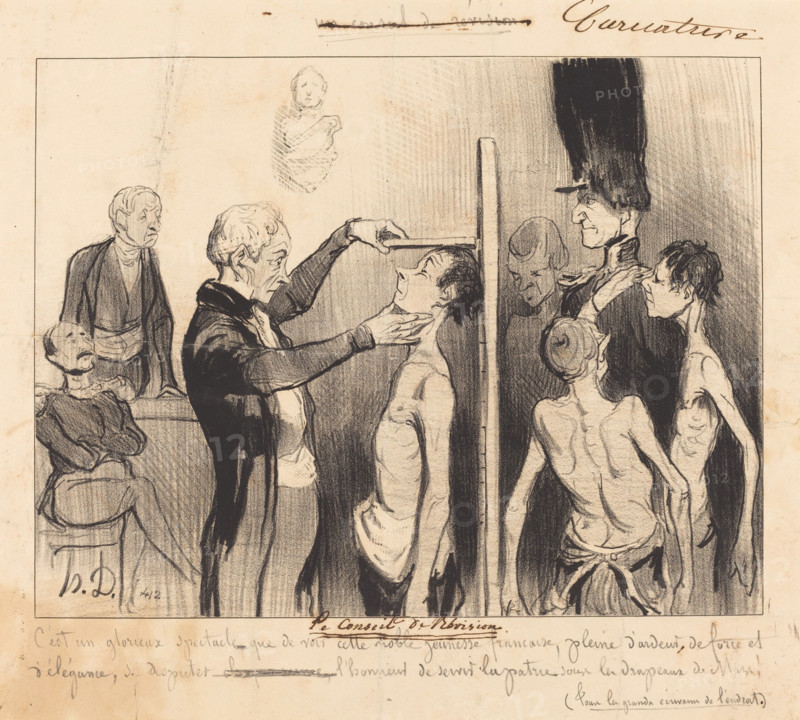 un conseil de révision
Caricature
h.D.
412
Le Conseil de Révision
C'est un glorieux spectacle que de voir cette noble jeunesse française, pleine d'ardeur, de force et
d'élégance, se disputer l'honneur de servir la patrie sous les drapeaux de Mars!
(Tous les grands écrivains de l'endroit.)